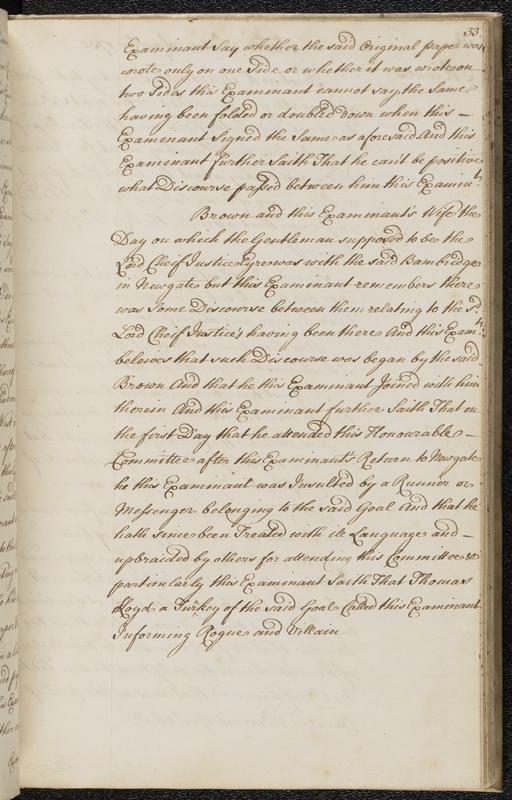 33.
Examinant Say whether the said Original paper was
wrote only on one Side or whether it was wrote on
two Sides this Examinant cannot say the Same
having been folded or doubled down when this —
Examinant Signed the Same as aforesaid And this
Examinant further Saith That he can't be positive
what Discourse passed between him this Examin.t
Brown and this Examinant's Wife the
Day on which the Gentleman supposed to be the
Lord Cheif Justice Eyre was with the said Bambridge
in Newgate but this Examinant remembers there
was some Discourse between them relating to the s.d
Lord Cheif Justice's having been there And this Exam.t
beleives that such Discourse was began by the said
Brown And that he this Examinant Joined with him
therein And this Examinant further Saith That on
the first Day that he attended this Honourable —
Committee after this Examinant's Return to Newgate
he this Examinant was Insulted by a Runner or
Messenger belonging to the said Goal And that he
hath since been Treated with ill Language and —
upbraided by others for attending this Committee &
particularly this Examinant Saith That Thomas
Loyd a Turkey of the said Goal Called this Examinant
Informing Rogue and Villain